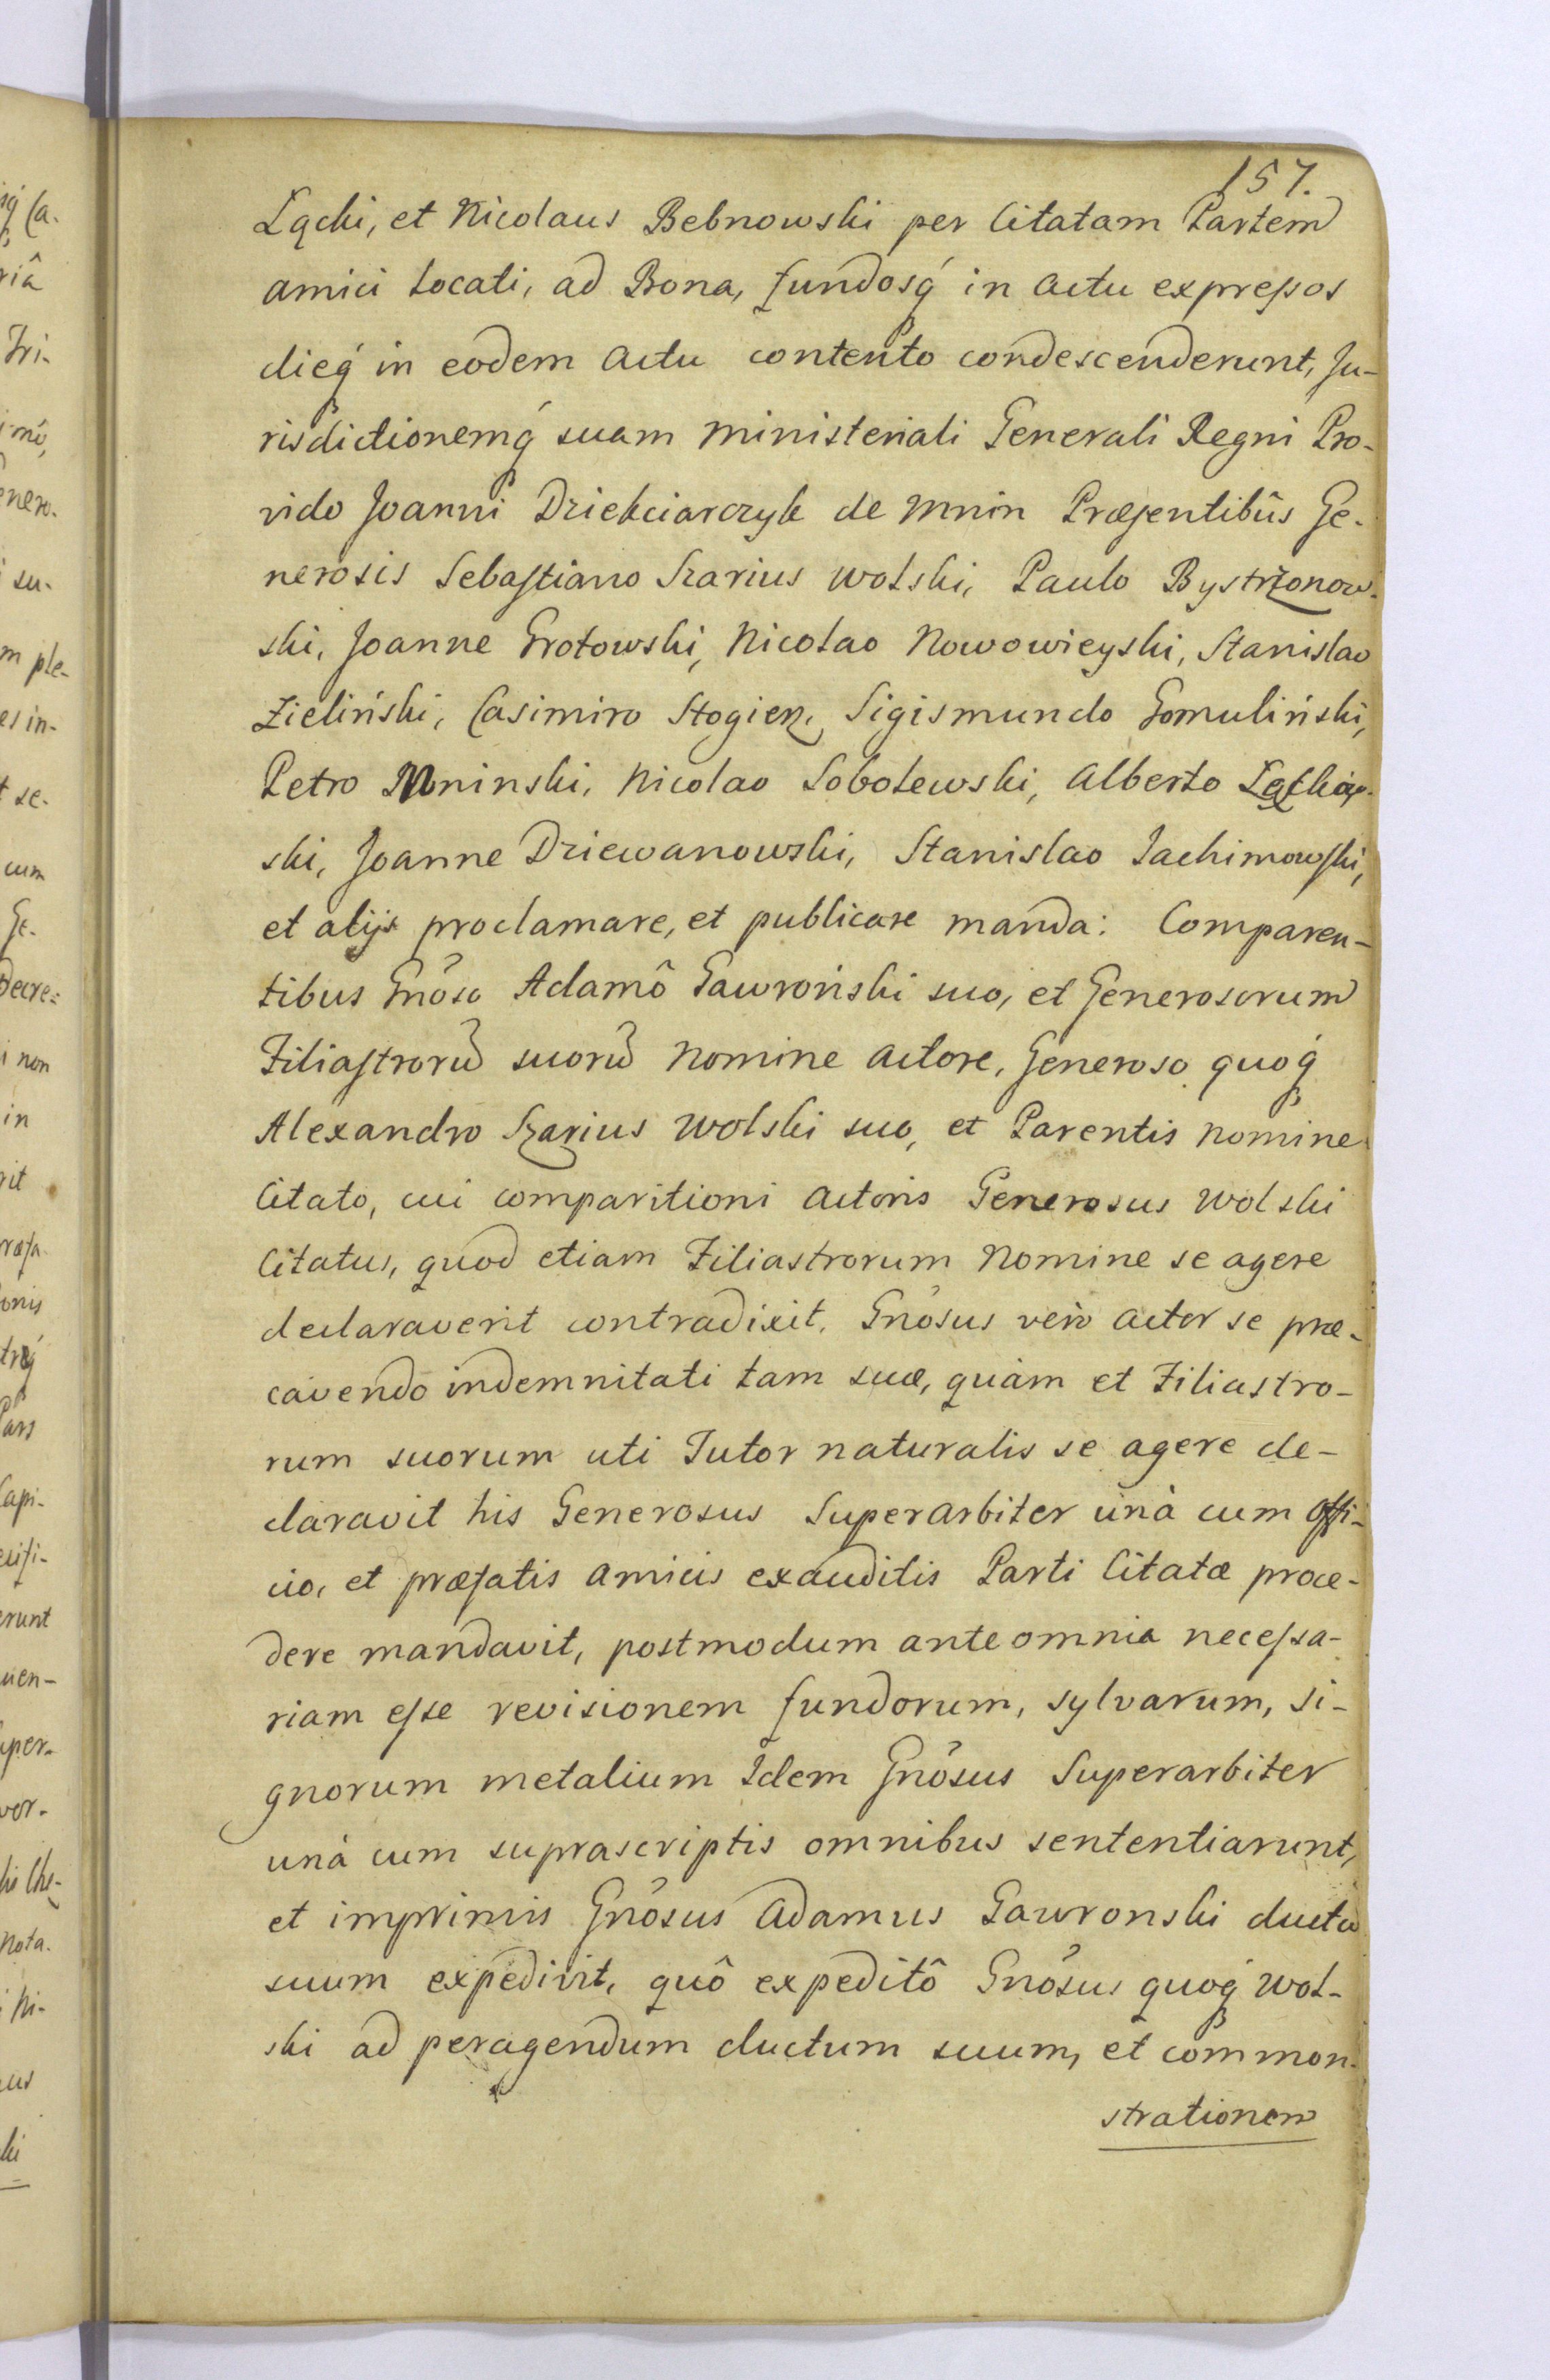 157.
Łącki, et Nicolaus Bebnowski per Citatam Partem
amici Locati, ad Bona, fundosq́ in actu expressos
dieq́ in eodem actu contento condescenderunt, Ju-
risdictionemq́ suam Ministeriali Generali Regni Pro-
vido Joanni Dziekciarczyk de Mnin Præsentibûs Ge-
nerosis Sebastiano Szarius Wolski, Paulo Bystrzonow-
ski, Joanne Grotowski, Nicolao Nowowieyski, Stanislao
Zieliński, Casimiro Stogien, Sigismundo Gomuliński,
Petro Mninski, Nicolao Sobolewski, Alberto
ski, Joanne Dziewanowski, Stanislao Jachimowski,
et alijs proclamare, et publicare manda: Comparen-
tibus Gnõso Adamô Gawroński suo, et Generosorum
Filiastrorũ suorũ Nomine Actore, Generoso quoq́
Alexandro Szarius Wolski suo, et Parentis Nomine
Citato, cui comparitioni Actoris Generosus Wolski
Citatus, quod etiam Filiastrorum Nomine se agere
declaraverit contradixit. Gnõsus verò Actor se præ-
cavendo indemnitati tam suæ, quàm et Filiastro-
rum suorum uti Tutor naturalis se agere de-
claravit his Generosus Superarbiter unà cum Offi-
cio, et præfatis Amicis exauditis Parti Citatæ proce-
dere mandavit, postmodum ante omnia necessa-
riam esse revisionem fundorum, sylvarum, si-
gnorum metalium Idem Gnõsus Superarbiter
unà cum suprascriptis omnibus sententiarunt,
et imprimis Gnõsus Adamus Gawronski ductũ
suum expedivit, quô expeditô Gnõsus quoq́ Wol-
ski ad peragendum ductum suum, et common-
strationem